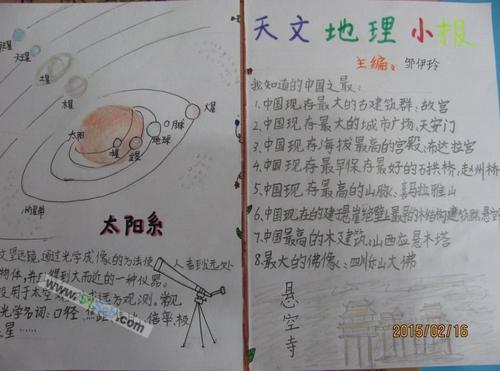 海王星
天王星
土星
木星
太阳
水星
金星
地球
月球
火星
太阳系
文望远镜,通过光学成像的方法使人看到远处
物体,并
得到大而近的一种仪器。
用于太空
远方观测,常规
光学名词:口径
倍率,极
星……
天文地理小报
主编:邹伊玲
我知道的中国之最:
1.中国现存最大的古建筑群:故宫
2.中国现存最大的城市广场:天安门
3.中国现存海拔最高的宫殿:布达拉宫
4.中国现存最早保存最好的石拱桥,赵州桥
5.中国现存最高的山脉:喜玛拉雅山
6.中国现存的建悬崖绝壁上最早的木结构建筑群,悬空
7.中国最高的木建筑:山西应县木塔
8.最大的佛像:四川乐山大佛
悬空寺
2015/02/16